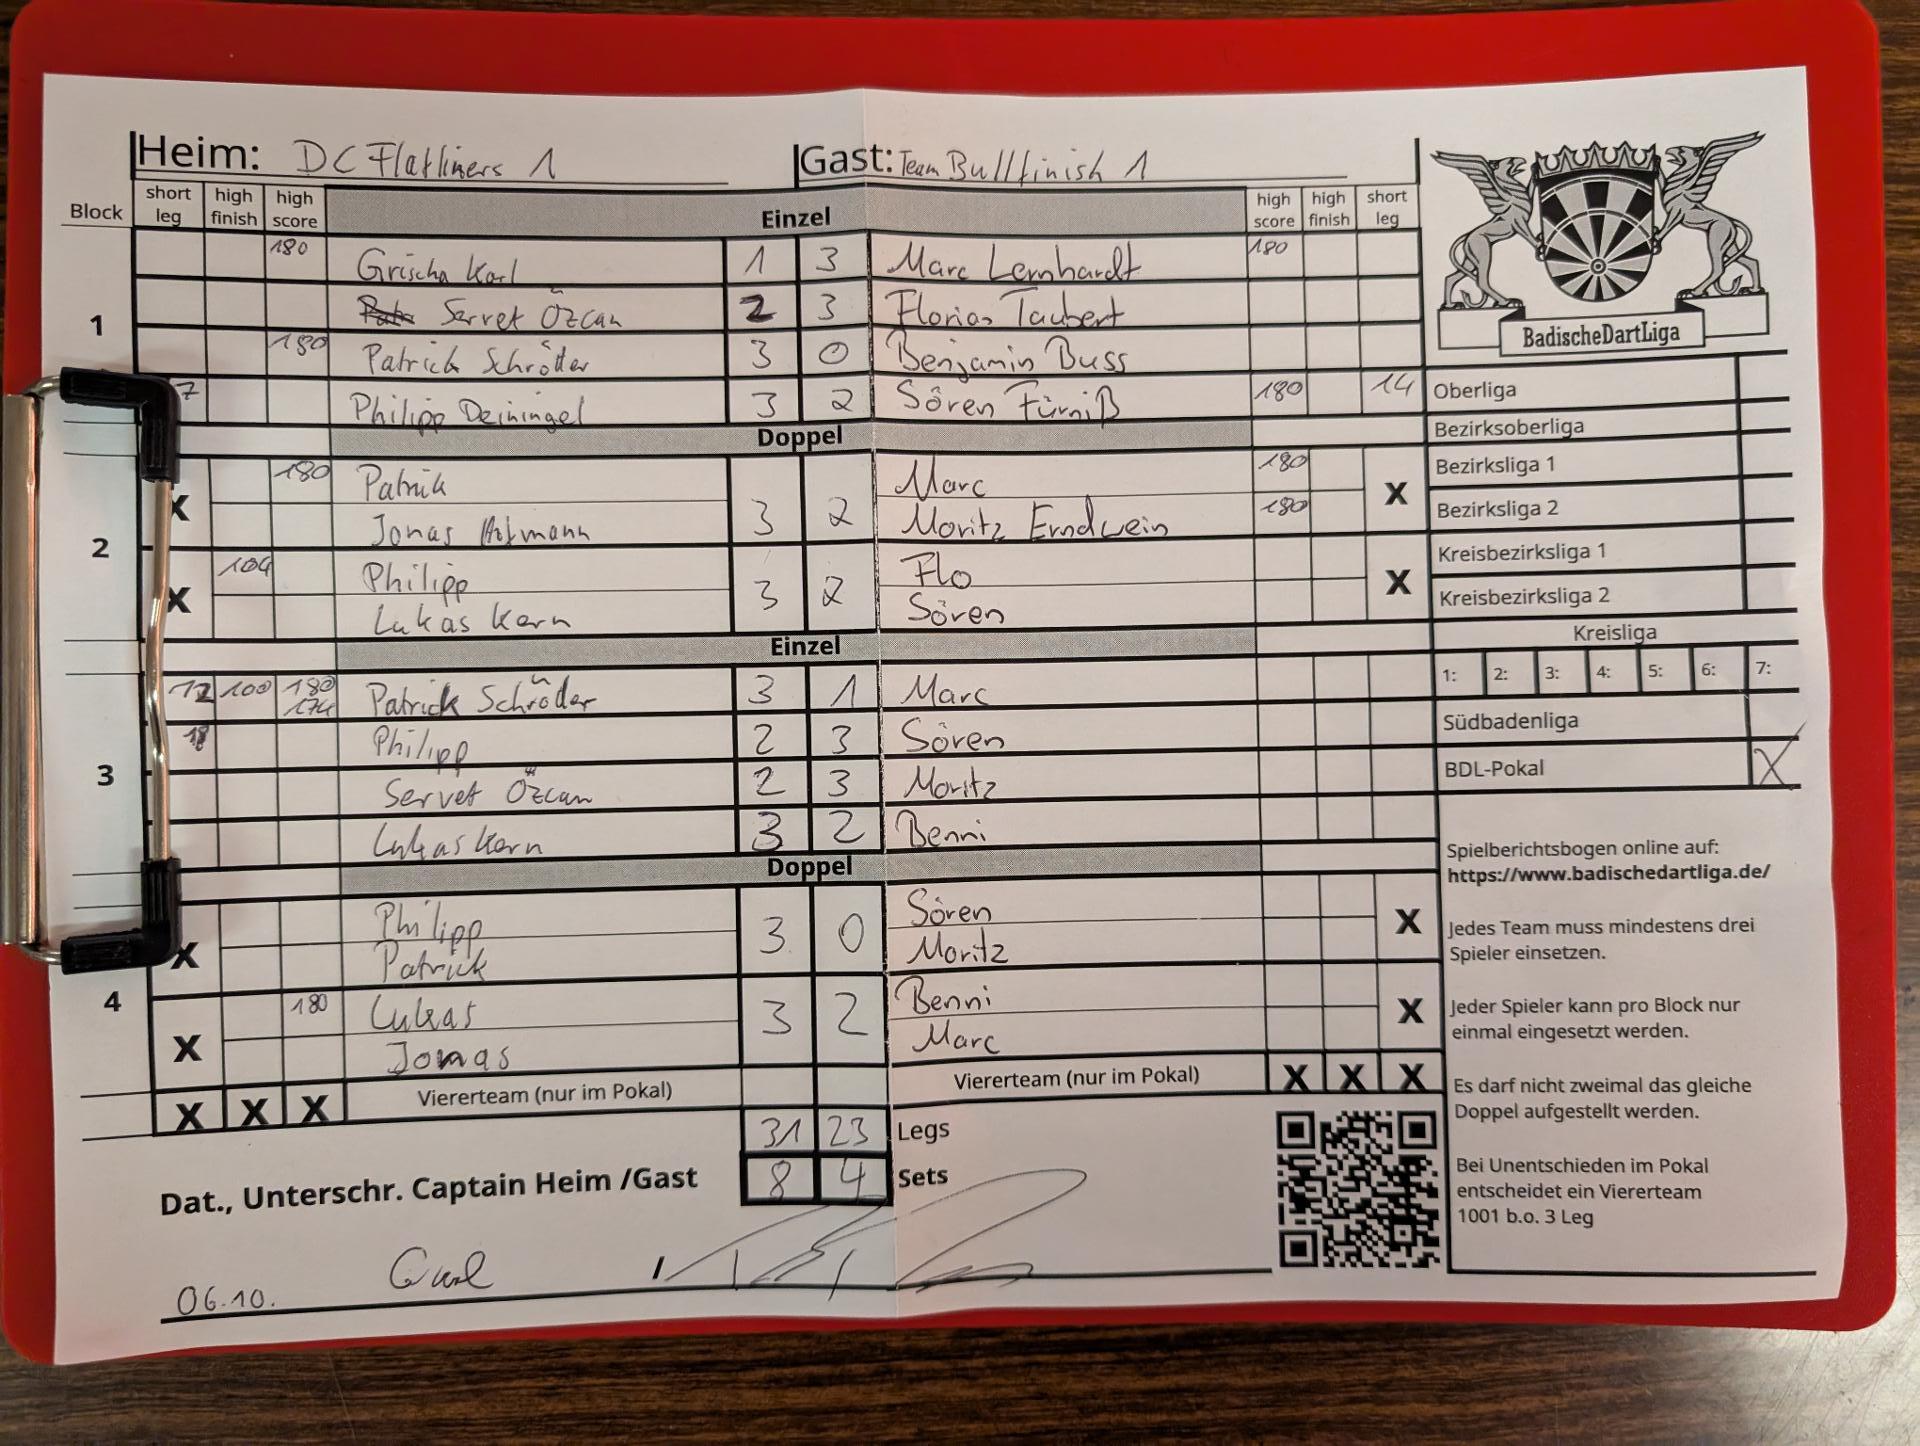 Heim: DC Flatliners 1 Gast: Team Bullfinish 1
Block short leg high finish high score Einzel high score high finish short leg
180 Grischa Karl 1 3 Marc Lernhardt 180
Servet Özcan 2 3 Florian Taubert
1
180 Patrick Schröder 3 0 Benjamin Buss
7 Philipp Deiningel 3 2 Sören Fürniß 180 14
Doppel
180 Patrik 3 2 Marc 180
X Jonas Moritz Erndwein 180 X
2
104 Philipp 3 2 Flo
X Lukas Kern Sören X
Einzel
12 100 180 174 Patrick Schröder 3 1 Marc
18 Philipp 2 3 Sören
3
Servet Özcan 2 3 Moritz
Lukas Kern 3 2 Benni
Doppel
Philipp 3 0 Sören
X Patrick Moritz X
4
180 Lukas 3 2 Benni
X Jonas Marc X
X X X Viererteam (nur im Pokal) Viererteam (nur im Pokal) X X X
31 23 Legs
8 4 Sets
Dat., Unterschr. Captain Heim /Gast
06.10. /
BadischeDartLiga
Oberliga
Bezirksoberliga
Bezirksliga 1
Bezirksliga 2
Kreisbezirksliga 1
Kreisbezirksliga 2
Kreisliga
1: 2: 3: 4: 5: 6: 7:
Südbadenliga
BDL-Pokal X
Spielberichtsbogen online auf:
https://www.badischedartliga.de/
Jedes Team muss mindestens drei
Spieler einsetzen.
Jeder Spieler kann pro Block nur
einmal eingesetzt werden.
Es darf nicht zweimal das gleiche
Doppel aufgestellt werden.
Bei Unentschieden im Pokal
entscheidet ein Viererteam
1001 b.o. 3 Leg